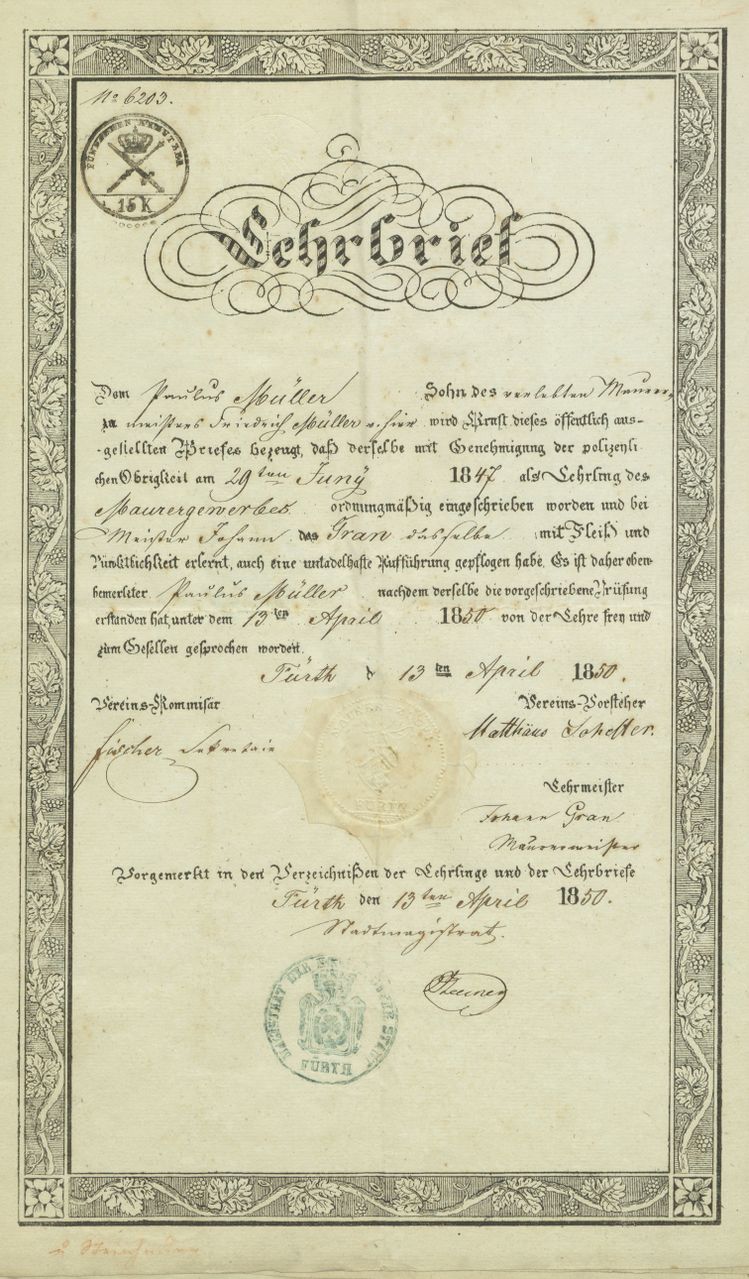 No 6203.
FÜNFZEHEN KREUTZER
15 K
Lehrbrief
Dem Paulus Müller Sohn des verlebten Maurer-
meisters Friedrich Müller v. hier wird Kraft dieses öffentlich aus-
-gestellten Briefes bezeugt, daß derselbe mit Genehmigung der polizeyli
chen Obrigkeit am 29ten Juny 1847 als Lehrling des
Maurergewerbes ordnungmäßig eingeschrieben worden und bei
Meister Johann Gran dasselbe mit Fleiß und
Pünktlichkeit erlernt, auch eine untadelhafte Aufführung gepflogen habe. Es ist daher oben-
bemerkter Paulus Müller nachdem derselbe die vorgeschriebene Prüfung
erstanden hat, unter dem 13ten April 1850 von der Lehre frey und
zum Gesellen gesprochen worden.
Fürth d 13ten April 1850.
Vereins-Kommisär Vereins-Vorsteher
Fischer Sekretair Matthäus
FÜRTH
Lehrmeister
Johann Gran
Maurermeister
Vorgemerkt in den Verzeichnißen der Lehrlinge und der Lehrbriefe
Fürth den 13ten April 1850.
Stadtmagistrat.
MAGISTRAT DER STADT
FÜRTH